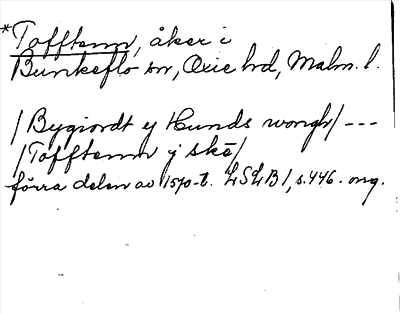 *Tofftenn, åker i
Bunkeflo sn, Oxie hd, Malm. l.
/Bygiordt ej Hunds wongh/ ---
/Tofftenn j skē/
förra delen av 1570-t. LSLB 1, s. 446. orig.